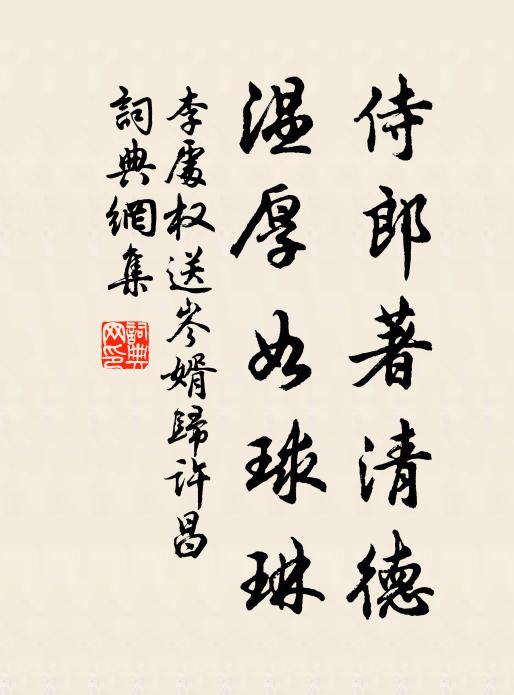 侍郎著清德
温厚如球琳
李處权送岑婿歸许昌
詞典網集
詞典网印